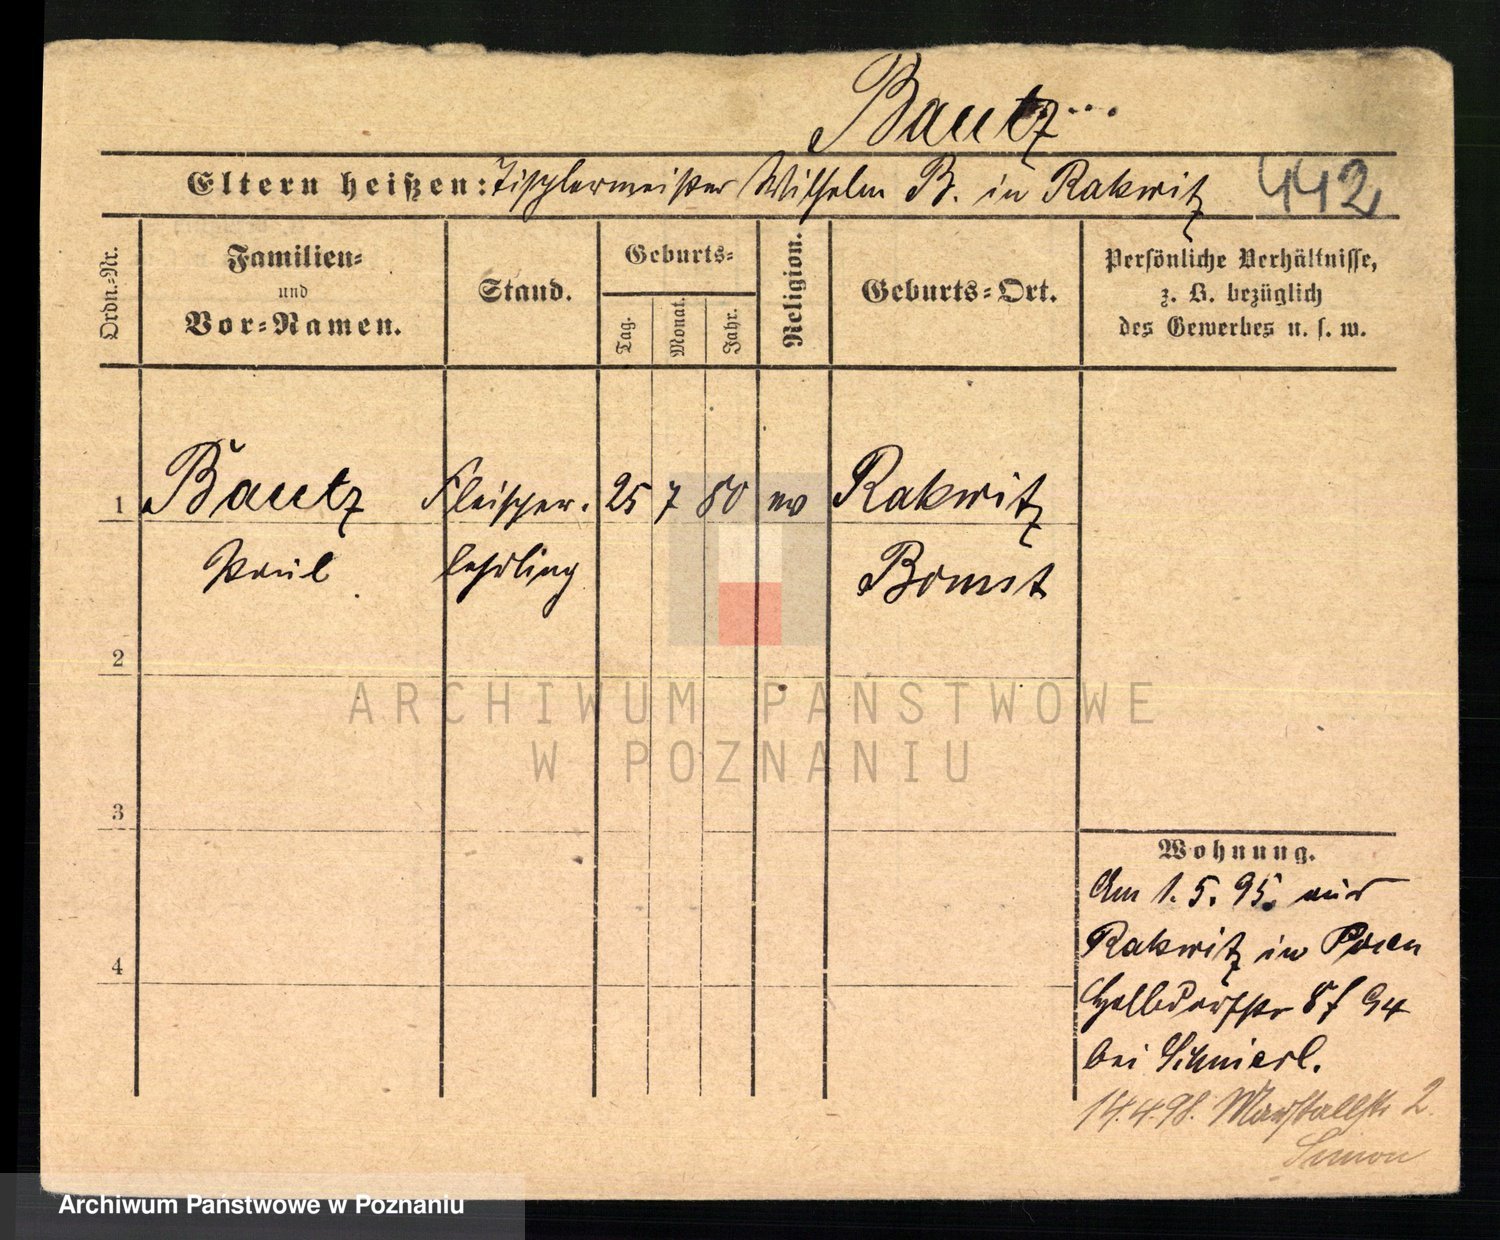 Bautz...
Eltern heißen: Tischlermeister Wilhelm B. in Rakwitz
442
Ordn.-Nr.
Familien-
und
Vor-Namen.
Stand.
Geburts-
Tag.
Monat.
Jahr.
Religion.
Geburts-Ort.
Persönliche Verhältnisse,
z. B. bezüglich
des Gewerbes u. s. w.
1 Bautz Fleischer- 25 7 80 ev Rakwitz
Paul lehrling Bomst
2
3
4
Wohnung.
Am 1. 5. 95. aus
Rakwitz in Posen
Halbdorfstr
bei
14.4.98. Marstallstr 2.
Simon
ARCHIWUM PAŃSTWOWE
W POZNANIU
Archiwum Państwowe w Poznaniu